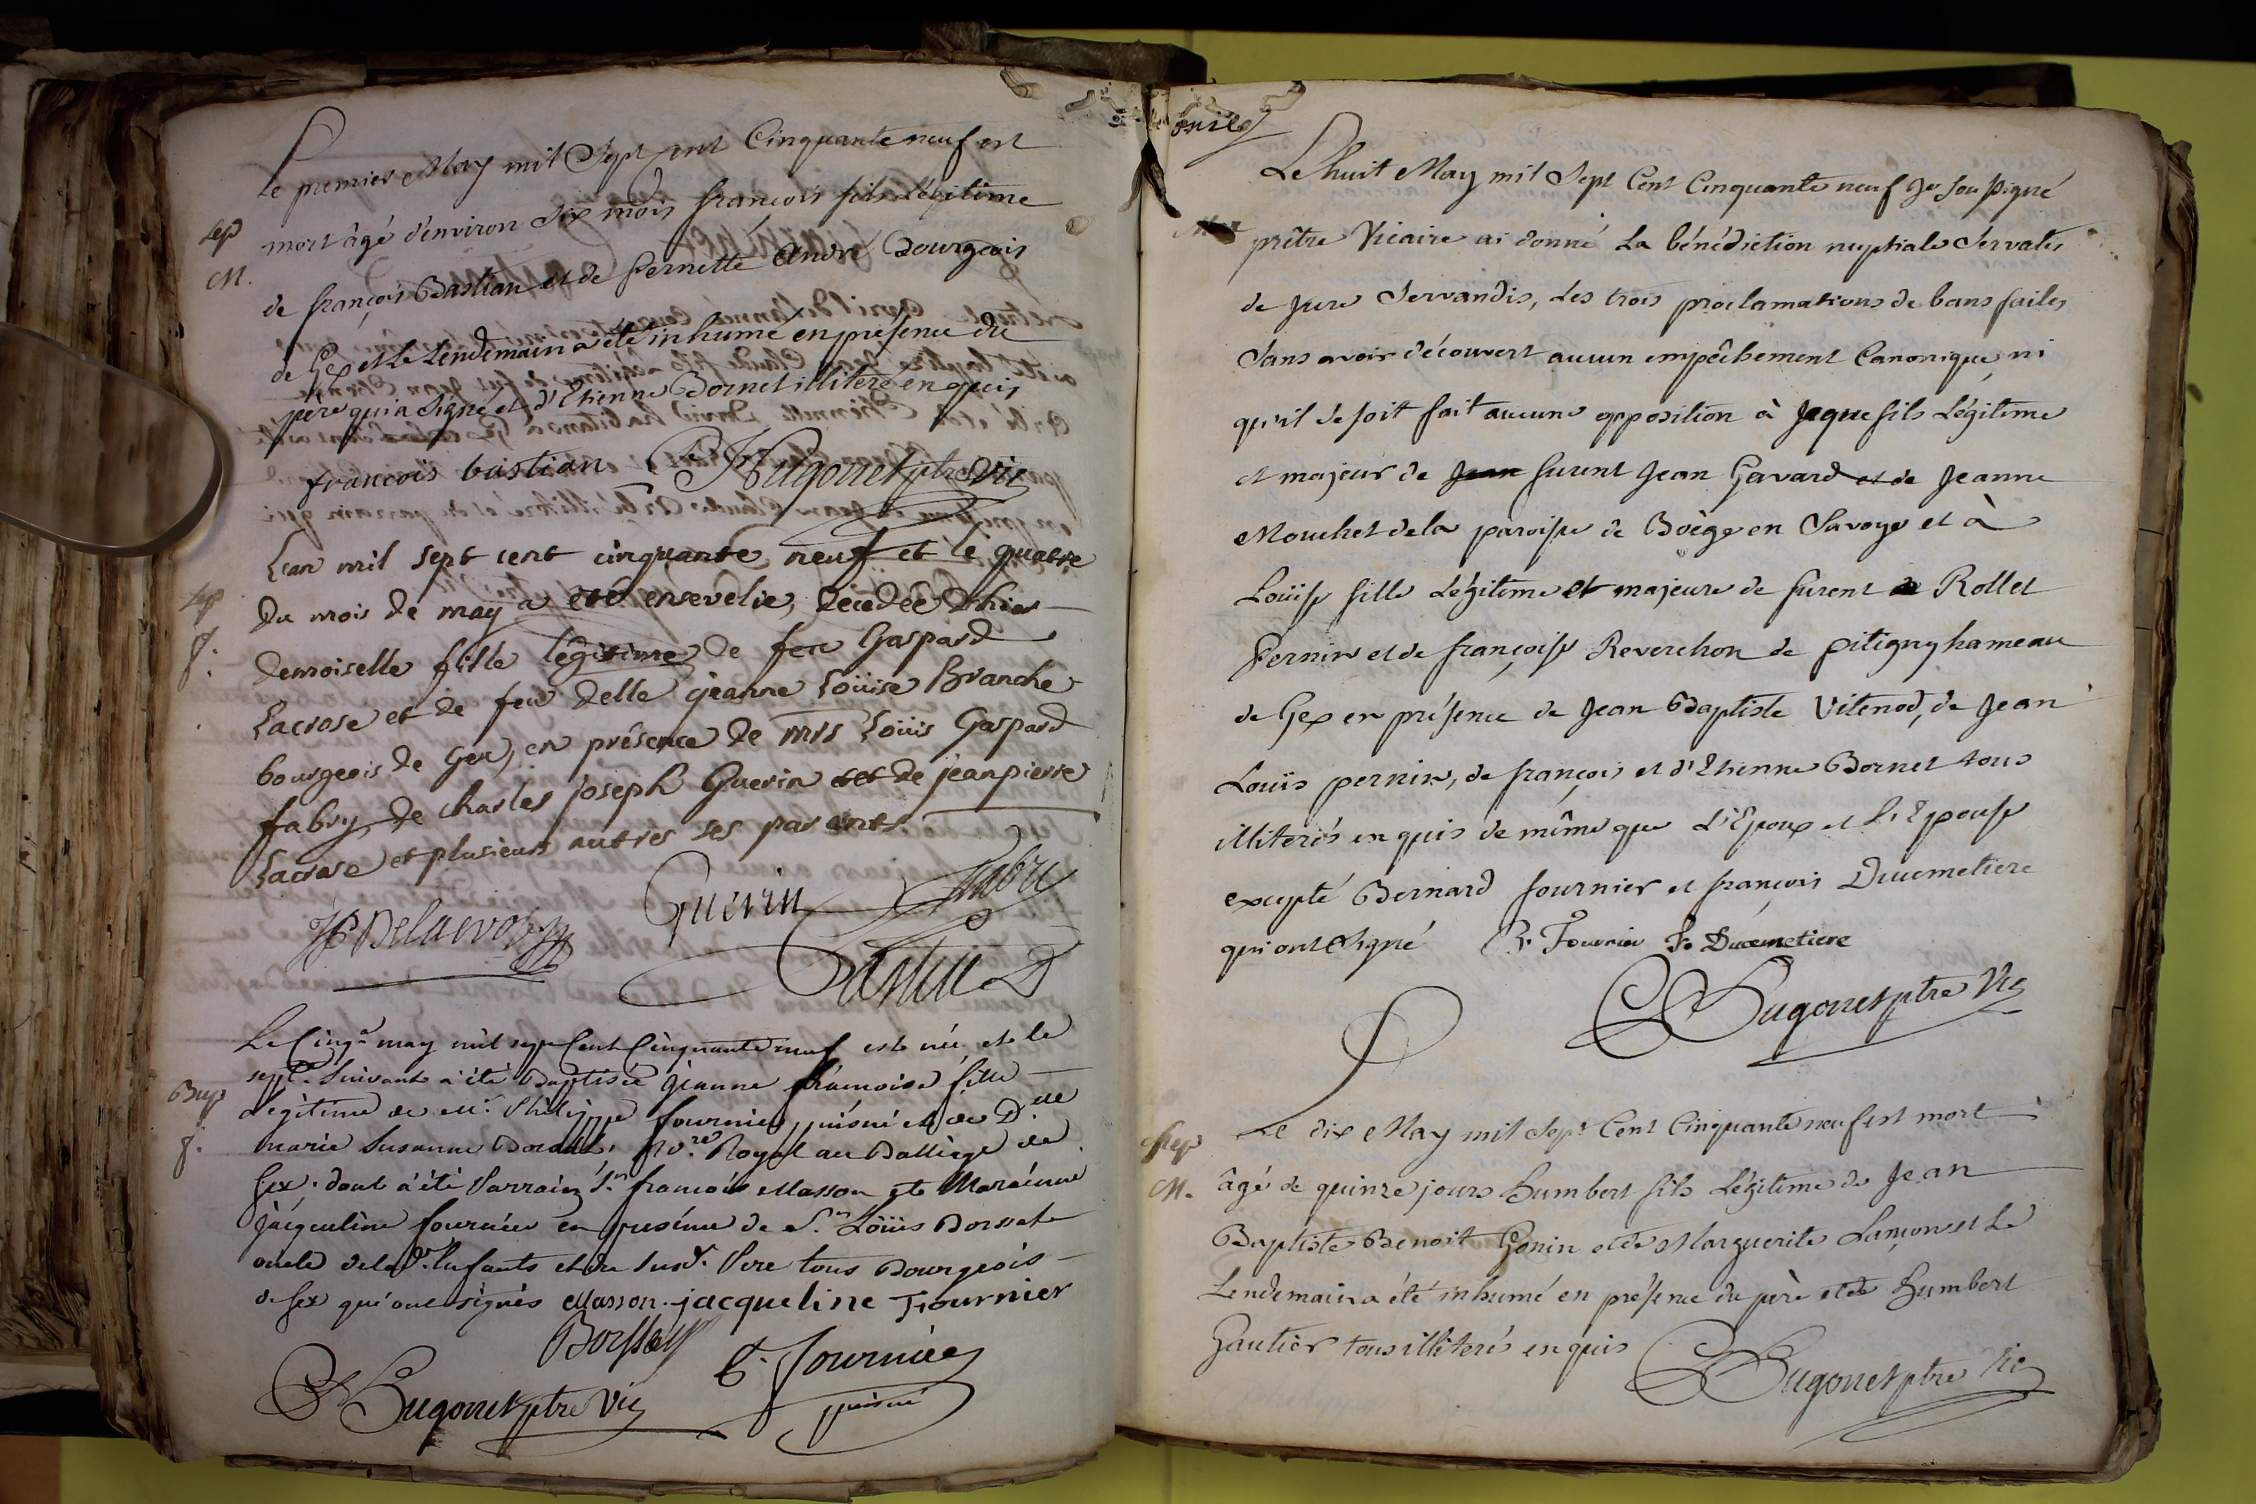 Le premier May mil Sept cent Cinquante neuf est
Sep mort âgé d'environ dix mois françois fils Légitime
M. de françois Bastian et de Pernette André Bourgeois
de Gex et Le Lendemain a été inhumé en présence du
pere qui a Signé et d'Etienne Bornet illiteré enquis
françois bastian Hugonet ptre Vic
Lan mil sept cent cinquante neuf et le quatre
Sep du mois de may a eté ensevelie, decedée d'hier
f. demoiselle fille légitime de feu Gaspard
Lacrose et de feu delle jeanne Loüise Branche
bourgeois de Gex, en présence de mrs Loüis Gaspard
fabry, de charles joseph Guerin et de jean pierre
Lacrose et plusieurs autres ses parents.
Guerin fabry
JP Delacroze
Le Cinq.e may mil sept Cent Cinquante neuf est née, et le
sept.e Suivant a été Baptisée jeanne françoise fille
Bap Légitime de Mr. Philippe fournier, puisné et de D.lle
f. marie Susanne Borssat, Royal au Balliage de
Gex. dont a été Parrain S.r françois Masson et Maraine
jacqueline fournier en presence de S.r Loüis Borssat
oncle de la d.e Enfant et du susd. Pere tous Bourgeois
de Gex qui ont signés Masson. jacqueline Fournier
Borssat P. Fournier
Hugonet ptre Vic puisné
Le huit May mil Sept Cent Cinquante neuf Je Soussigné
Mar prêtre Vicaire ai donné La bénédiction nuptiale Servatis
de jure Servandis, Les trois proclamations de bans faites
Sans avoir découvert aucun empêchement Canonique, ni
qu'il se soit fait aucune opposition à Jaque fils Légitime
et majeur de Jean furent Jean Gavard et de Jeanne
Mouchet de la paroisse de Boëge en Savoye et à
Loüise fille Légitime et majeure de furent Rollet
Pernin et de françoise Reverchon de pitigny hameau
de Gex en présence de Jean Baptiste Vitenod, de Jean
Louïs pernin, de françois et d'Etienne Bornet tous
illiterés enquis de même que L'Epoux et L'Epouse
excepté Bernard fournier et françois Ducimetiere
qui ont Signé B. Fournier F. Ducimetiere
Hugonet ptre Vic
Le dix May mil Sept Cent Cinquante neuf est mort
Sep âgé de quinze jours humbert fils Légitime de Jean
M. Baptiste Benoit Gonin et de Marguerite Lançon et Le
Lendemain a été inhumé en présence du père et de humbert
Gautier tous illiterés enquis Hugonet ptre Vic